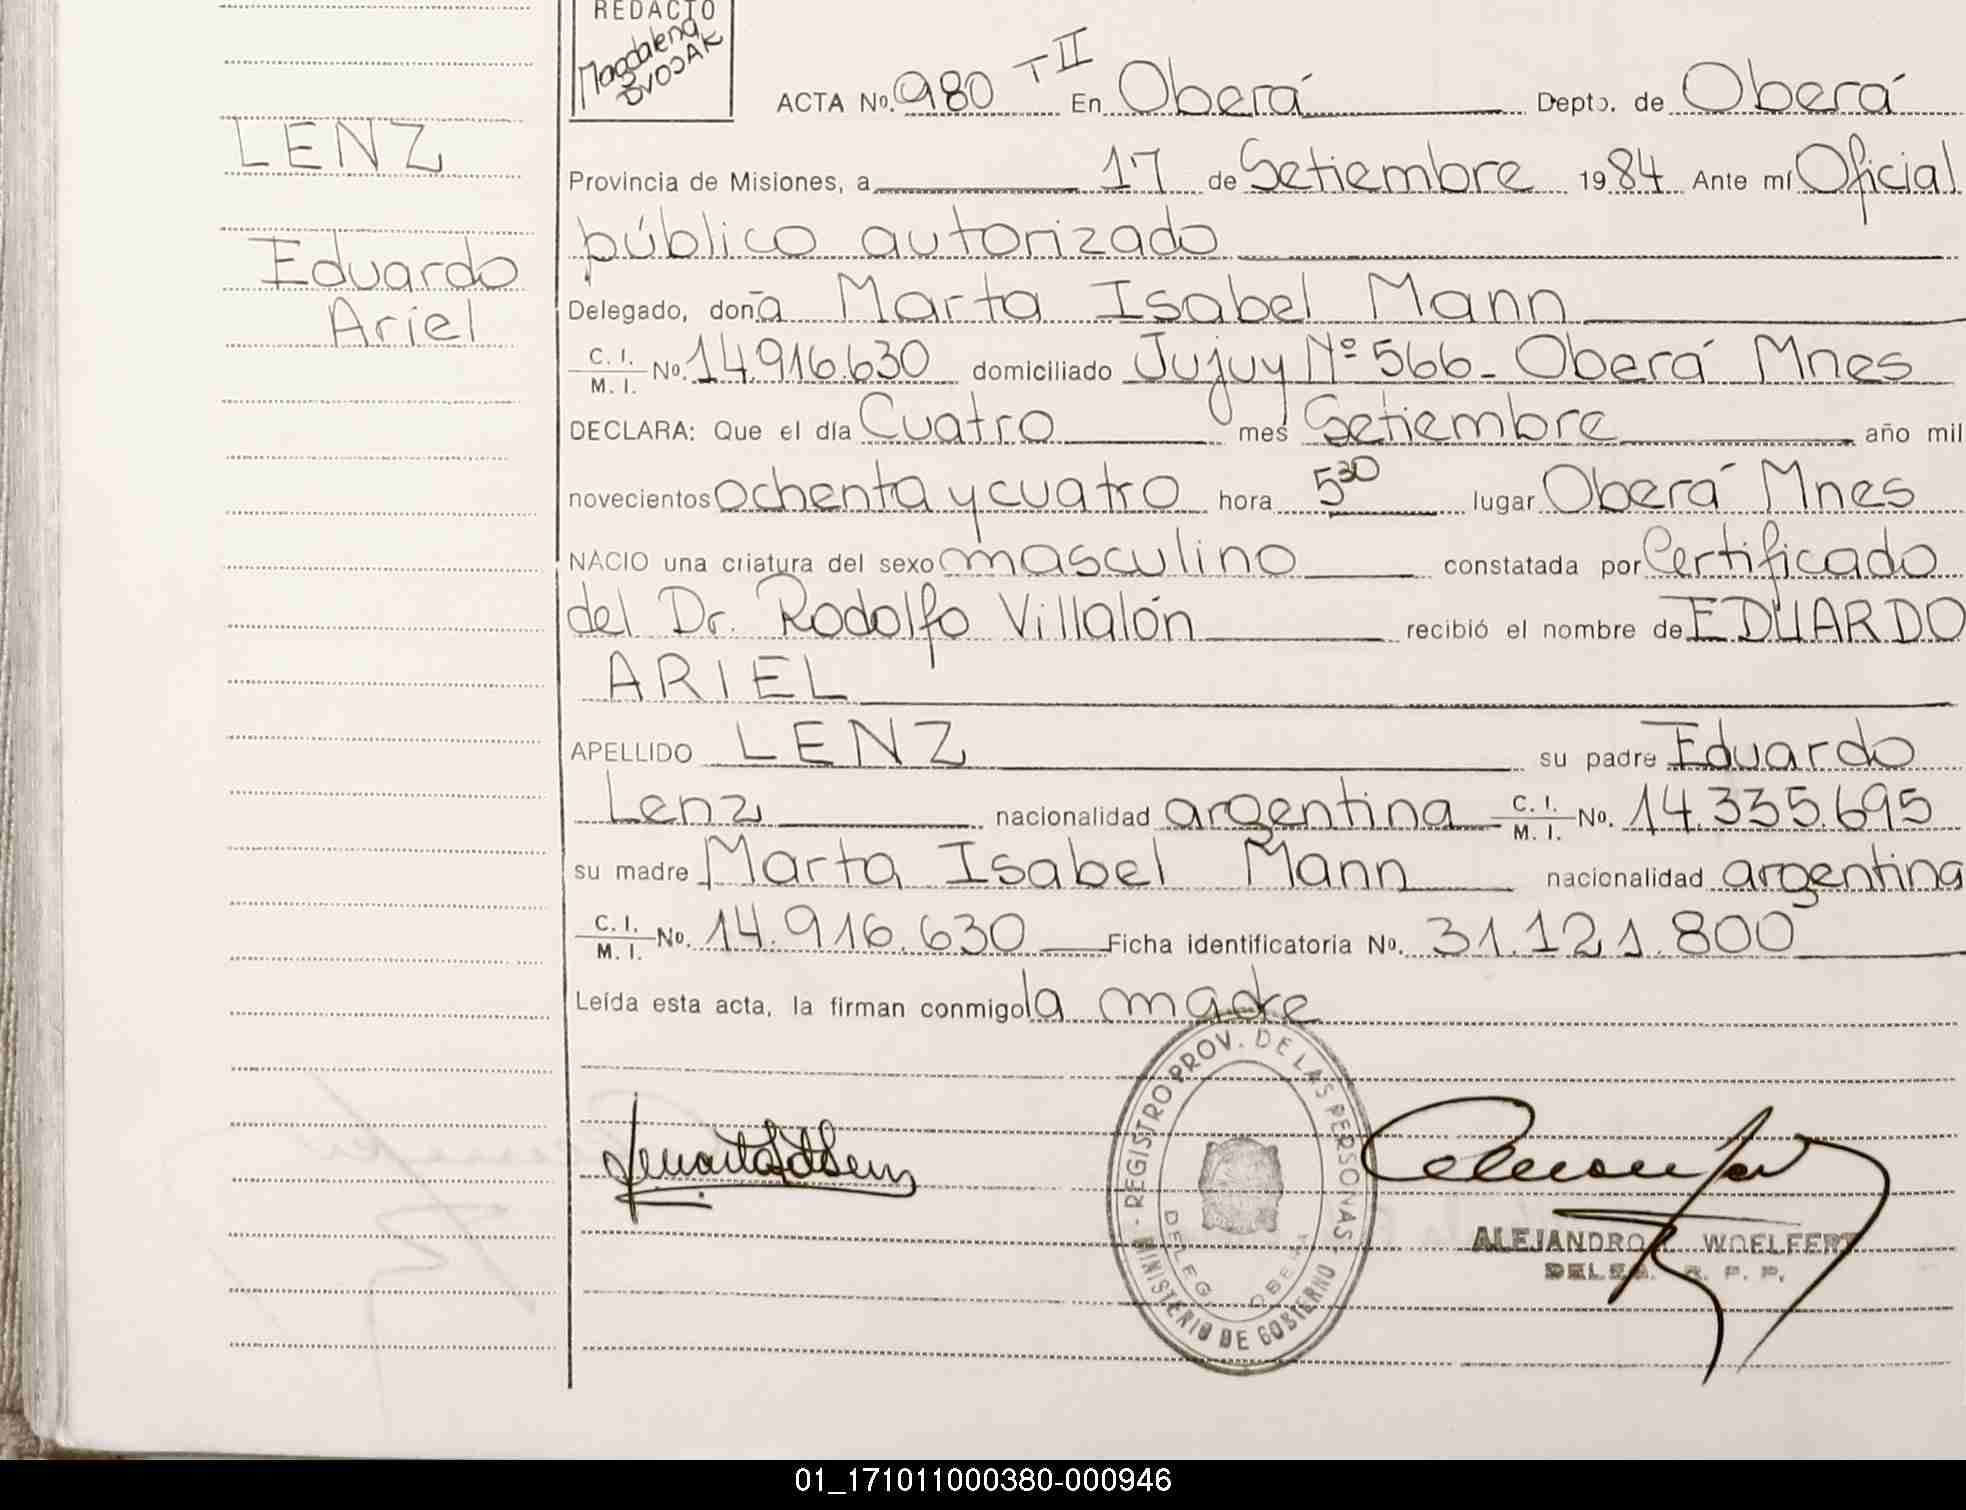 REDACTO
Magdalena
ACTA No. 980 T II En Oberá Depto. de Oberá
LENZ
Provincia de Misiones, a 17 de Setiembre 1984 Ante mí Oficial
público autorizado
Eduardo
Ariel
Delegado, doña Marta Isabel Mann
C. I. / M. I. No. 14.916.630 domiciliado Jujuy Nº 566 - Oberá Mnes
DECLARA: Que el día Cuatro mes Setiembre año mil
novecientos ochenta y cuatro hora 5 30 lugar Oberá Mnes
NACIO una criatura del sexo masculino constatada por Certificado
del Dr. Rodolfo Villalón recibió el nombre de EDUARDO
ARIEL
APELLIDO LENZ su padre Eduardo
Lenz nacionalidad argentina C. I. / M. I. No. 14.335.695
su madre Marta Isabel Mann nacionalidad argentina
C. I. / M. I. No. 14.916.630 Ficha identificatoria No. 31.121.800
Leída esta acta, la firman conmigo la madre
REGISTRO PROV. DE LAS PERSONAS
MINISTERIO DE GOBIERNO
DELEG. OBERA
ALEJANDRO WOELFERT
DELEG. R. P. P.
01_171011000380-000946